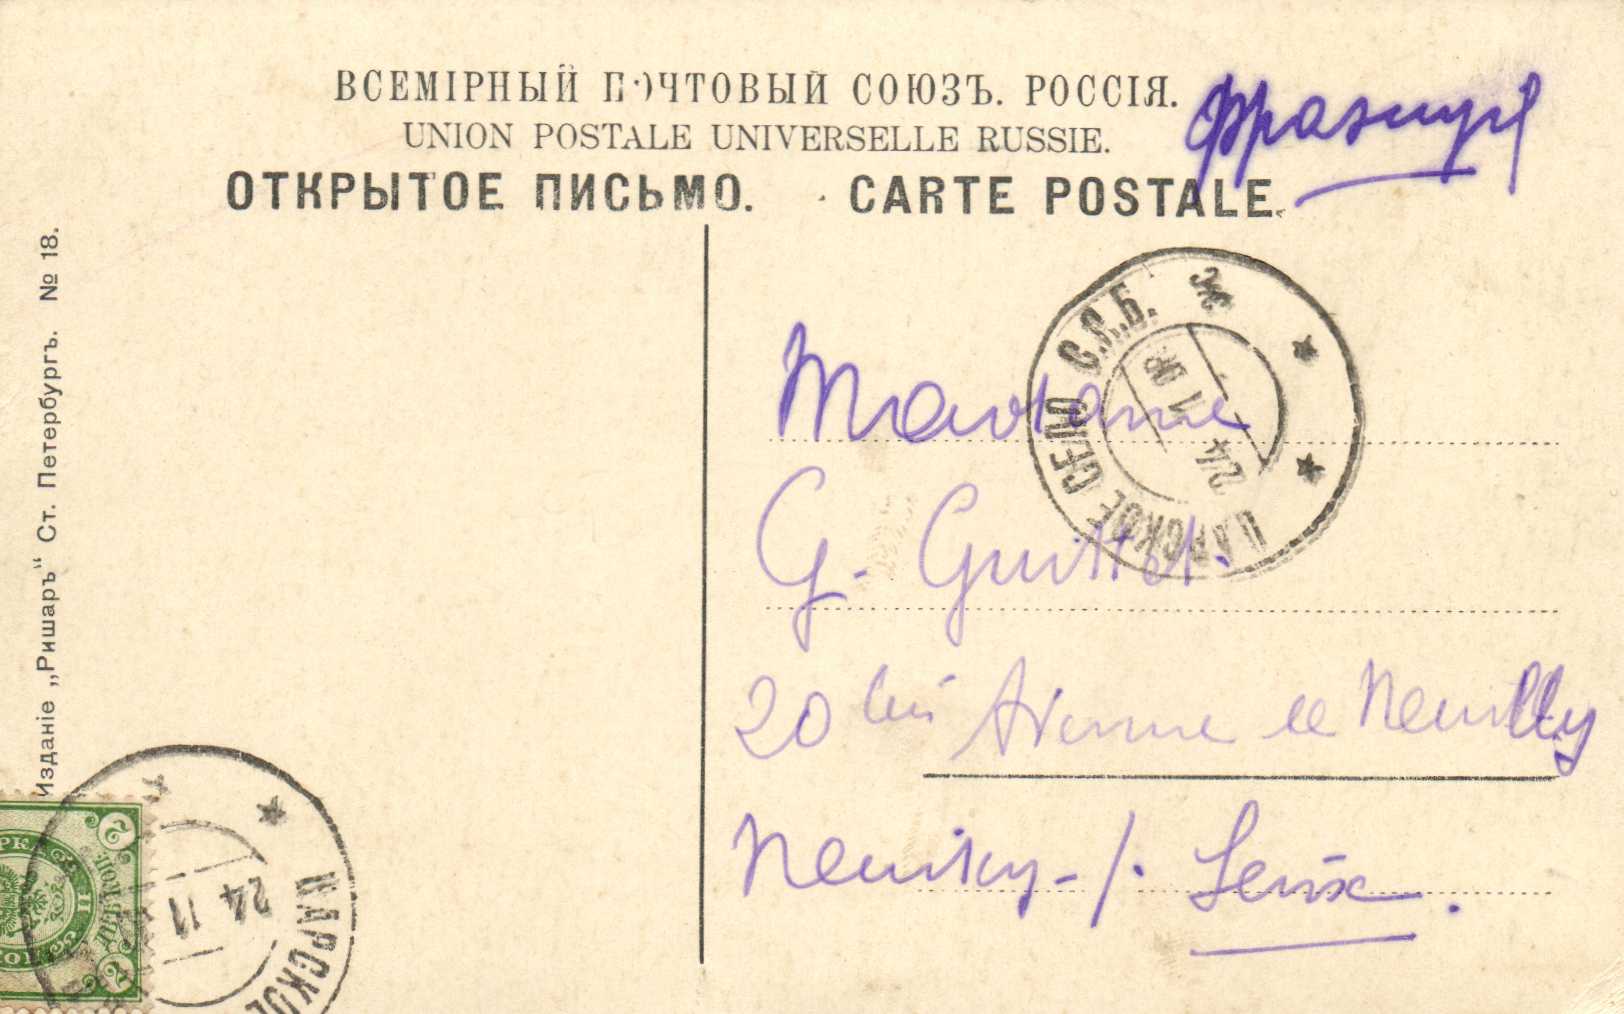 ВСЕМІРНЫЙ ПОЧТОВЫЙ СОЮЗЪ. РОССІЯ.
UNION POSTALE UNIVERSELLE RUSSIE.
ОТКРЫТОЕ ПИСЬМО. CARTE POSTALE.
Изданіе „Ришаръ“ Ст. Петербургъ. № 18.
ЦАРСКОЕ СЕЛО С.П.Б.
24 11
Madame
G. Guittet.
20 bis Avenue de Neuilly
Neuilly-/. Seine.
2
2
24 11
ЦАРСКОЕ